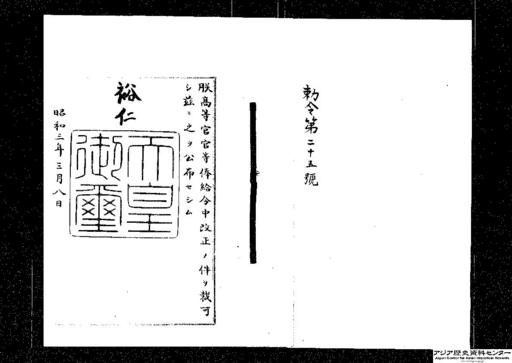 勅令第二十五號
朕高等官官等俸給令中改正ノ件ヲ裁可
シ茲ニ之ヲ公布セシム
裕仁
天皇御璽
昭和三年三月八日
アジア歴史資料センター
Japan Center for Asian Historical Records